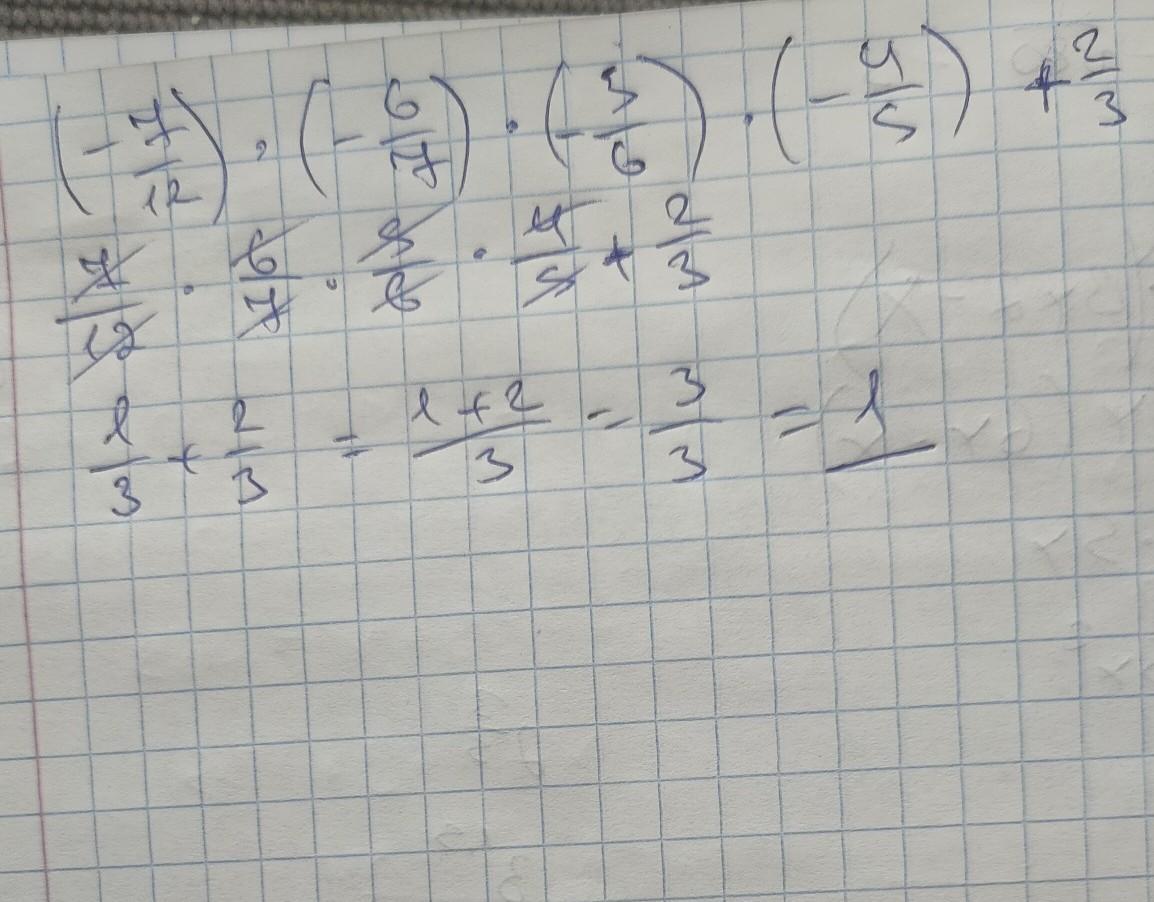 (-7/12) · (-6/7) · (-5/6) · (-4/5) + 2/3
7/12 · 6/7 · 5/6 · 4/5 + 2/3
1/3 + 2/3 = 1+2/3 = 3/3 = 1